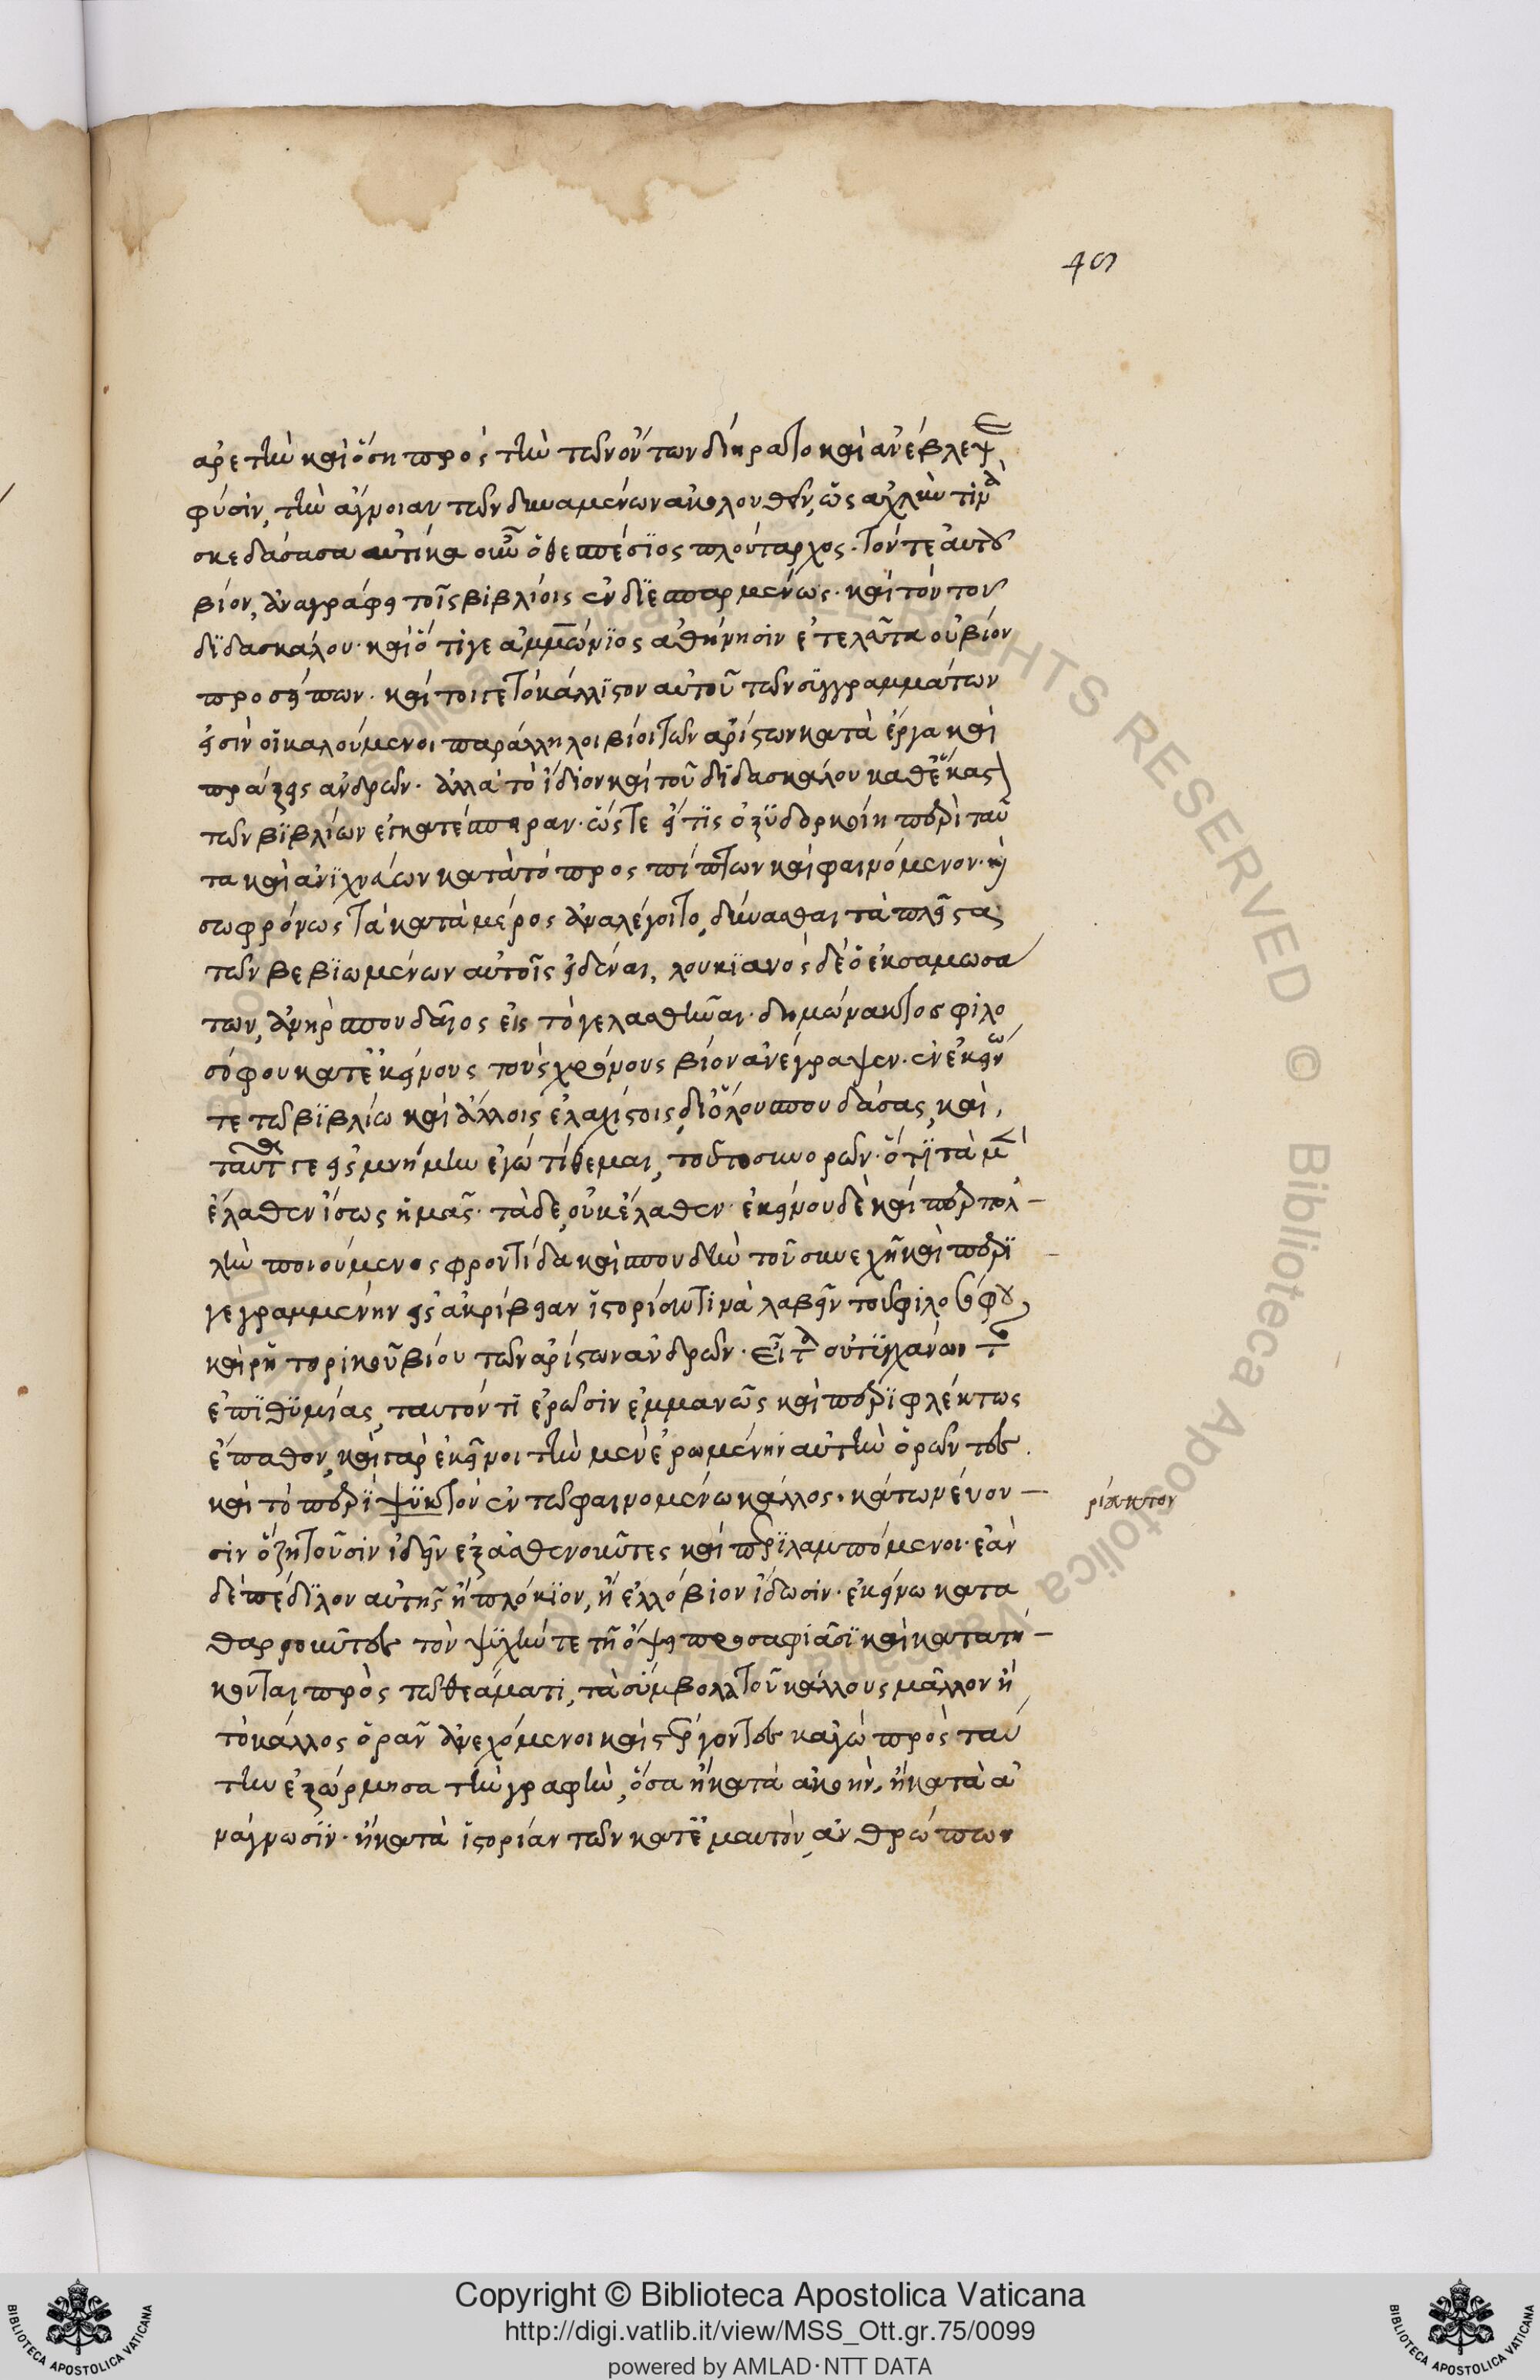 46
ἀρετὴν καὶ ὅση πρὸς τὴν τῶν ὄντων διῇρατο καὶ ἀνέβλεψε
φύσιν, τὴν ἄγνοιαν τῶν δυναμένων ἀκολουθεῖν, ὡς ἀχλύν τινα
σκεδάσασα αὐτίκα οὖν ὁ θεσπέσιος πλούταρχος. τόν τε αὐτοῦ
βίον, ἀναγράφει τοῖς βιβλίοις ἐνδιεσπαρμένως. καὶ τὸν τοῦ
διδασκάλου. καὶ ὅτι γε ἀμμώνιος ἀθήνησιν ἐτελεύτα οὐ βίον
προσειπων. καί τοι γε τὸ κάλλιστον αὐτοῦ τῶν συγγραμμάτων
εἰσὶν οἱ καλούμενοι παράλληλοι βίοι τῶν ἀρίστων κατὰ ἔργα καὶ
πράξεις ἀνδρῶν. ἀλλὰ τὸ ἴδιον καὶ τοῦ διδασκάλου καθ' ἕκαστον
τῶν βιβλίων ἐγκατέσπειραν. ὥστε εἴ τις ὀξυδορκοίη περὶ ταῦ
τα καὶ ἀνιχνεύων κατὰ τὸ προσπίπτων καὶ φαινόμενον. καὶ
σωφρόνως τὰ κατὰ μέρος ἀναλέγοιτο, δύνασθαι τὰ πλεῖστα
τῶν βεβιωμένων αὐτοῖς εἰδέναι, λουκιανὸς δὲ ὁ ἐκ σαμωσά
των, ἀνὴρ σπουδαῖος εἰς τὸ γελασθῆναι. δημώνακτος φιλο
σόφου κατ' ἐκείνους τοὺς χρόνους βίον ἀνέγραψεν. ἐν ἐκείνω
τε τῶ βιβλίω καὶ ἄλλοις ἐλαχίστοις, δι' ὅλου σπουδάσας, καὶ,
ταῦτά γε εἰς μνήμην ἐγὼ τίθεμαι, τοῦτο συνορῶν. ὅτι τὰ μὲν
ἔλαθεν ἴσως ἡμᾶς. τὰ δὲ, οὐκ ἔλαθεν. ἐκείνου δὲ καίπερ πολ
λὴν ποιούμενος φροντίδα καὶ σπουδὴν τοῦ συνεχῆ καὶ περι
γεγραμμένην εἰς ἀκρίβειαν ἱστορίαν τινὰ λαβεῖν τοῦ φιλοσόφου
καὶ ῥητορικοῦ βίου τῶν ἀρίστων ἀνδρῶν. εἶτα οὐ τυγχάνων τῆς
ἐπιθυμίας, ταυτόν τι ἐρῶσιν ἐμμανῶς καὶ περιφλέκτως
ἔπαθον, καὶ γὰρ ἐκεῖνοι τὴν μὲν ἐρωμένην αὐτὴν ὁρῶντες
καὶ τὸ περιψυκτον ἐν τῶ φαινομένω κάλλος. κάτω νεύου
σιν ὃ ζητοῦσιν ἰδεῖν ἐξασθενοῦντες καὶ περιλαμπόμενοι. ἐὰν
δὲ πέδιλον αὐτῆς ἢ πλόκιον, ἢ ἐλλόβιον ἴδωσιν. ἐκείνω κατα
θαρροῦντες τὸν ψυχήν τε τῇ ὄψει προσαφιᾶσι καὶ κατατή
κονται πρὸς τῶ θεάματι, τὰ σύμβολα τοῦ κάλλους μᾶλλον ἢ
τὸ κάλλος ὁρᾶν ἀνεχόμενοι καὶ στέργοντες κἀγὼ πρὸς ταύ
την ἐξώρμησα τὴν γραφὴν, ὅσα ἢ κατὰ ἀκοὴν, ἢ κατὰ ἀ
νάγνωσιν. ἢ κατὰ ἱστορίαν τῶν κατ' ἐμαυτὸν, ἀνθρώπων
ρίακτον
Copyright © Biblioteca Apostolica Vaticana
http://digi.vatlib.it/view/MSS_Ott.gr.75/0099
powered by AMLAD·NTT DATA
BIBLIOTECA APOSTOLICA VATICANA
BIBLIOTECA APOSTOLICA VATICANA